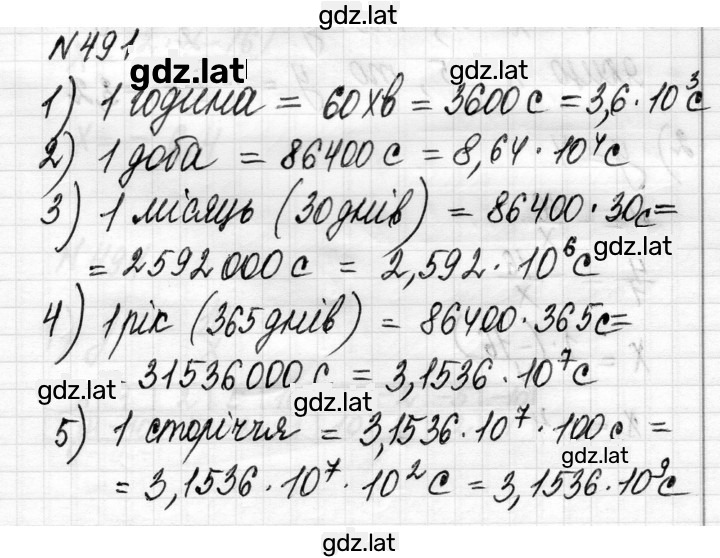 gdz.lat
N 491
gdz.lat
gdz.lat
1) 1 година = 60 хв = 3600 с = 3,6 · 10³ с
2) 1 доба = 86400 с = 8,64 · 10⁴ с
3) 1 місяць (30 днів) = 86400 · 30 с =
gdz.lat
= 2592000 с = 2,592 · 10⁶ с
4) 1 рік (365 днів) = 86400 · 365 с =
gdz.lat
31536000 с = 3,1536 · 10⁷ с
gdz.lat
5) 1 сторіччя = 3,1536 · 10⁷ · 100 с =
gdz.lat
= 3,1536 · 10⁷ · 10² с = 3,1536 · 10⁹ с
gdz.lat